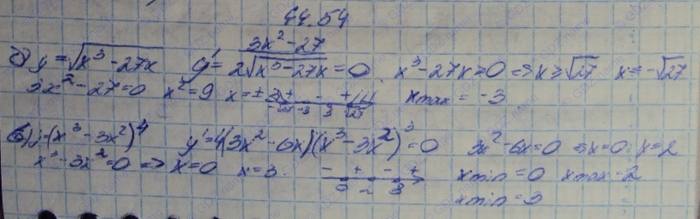 44.54
б) y = √(x³ - 27x) y' = (3x² - 27)/(2√(x³ - 27x)) = 0 x³ - 27x > 0 => x ≥ √27 x = -√27
3x² - 27 = 0 x² = 9 x = ± 3 xmax = -3
(x³ - 3x²)⁴ y' = 4(3x² - 6x)(x³ - 3x²)³ = 0 3x² - 6x = 0 => x = 0 x = 2
x³ - 3x² = 0 => x = 0 x = 3. - + - + xmin = 0 xmax = 2
0 2 3 xmin = 3